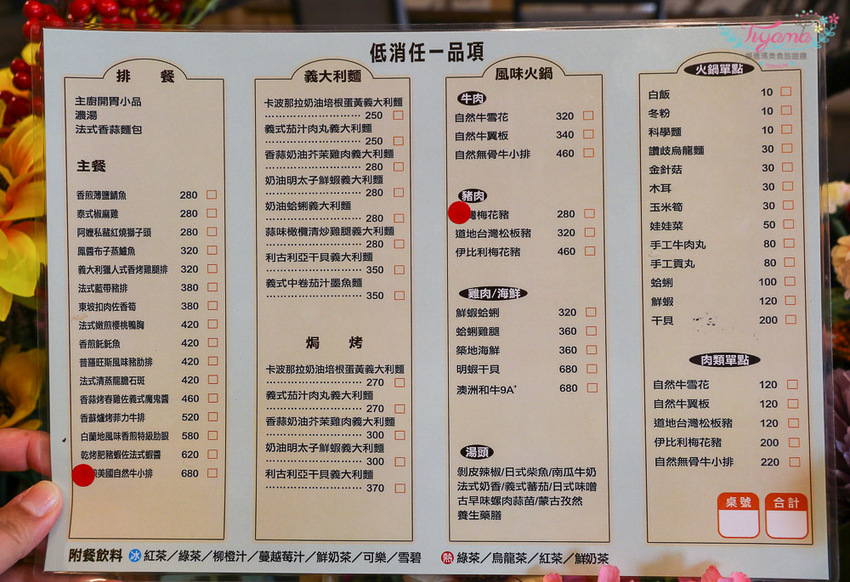 Iuyama
低消任一品項
排 餐
主廚開胃小品
濃湯
法式香蒜麵包
主餐
香煎薄鹽鯖魚 280
泰式椒麻雞 280
阿嬤私藏紅燒獅子頭 280
鳳醬布子蒸鱸魚 320
義大利獵人式香烤雞腿排 320
法式藍帶豬排 380
東坡扣肉佐香筍 380
法式嫩煎櫻桃鴨胸 420
香煎魠魠魚 420
普羅旺斯風味豬肋排 420
法式清蒸龍膽石斑 420
香蒜烤春雞佐義式魔鬼醬 460
香蘇爐烤菲力牛排 520
白蘭地風味香煎特級肋眼 580
乾烤肥豬蝦佐法式蝦醬 620
美國自然牛小排 680
義大利麵
卡波那拉奶油培根蛋黃義大利麵
250
義式茄汁肉丸義大利麵
250
香蒜奶油芥茉雞肉義大利麵
280
奶油明太子鮮蝦義大利麵
280
奶油蛤蜊義大利麵
280
蒜味橄欖清炒雞腿義大利麵
280
利古利亞干貝義大利麵
350
義式中卷茄汁墨魚麵
350
焗 烤
卡波那拉奶油培根蛋黃義大利麵
270
義式茄汁肉丸義大利麵
270
香蒜奶油芥茉雞肉義大利麵
300
奶油明太子鮮蝦義大利麵
300
利古利亞干貝義大利麵
370
風味火鍋
牛肉
自然牛雪花 320
自然牛翼板 340
自然無骨牛小排 460
豬肉
灣梅花豬 280
道地台灣松板豬 320
伊比利梅花豬 460
雞肉/海鮮
鮮蝦蛤蜊 320
蛤蜊雞腿 360
築地海鮮 360
明蝦干貝 680
澳洲和牛9A+ 680
湯頭
剝皮辣椒/日式柴魚/南瓜牛奶
法式奶香/義式蕃茄/日式味噌
古早味螺肉蒜苗/蒙古孜然
養生藥膳
火鍋單點
白飯 10
冬粉 10
科學麵 10
讚歧烏龍麵 30
金針菇 30
木耳 30
玉米筍 30
娃娃菜 50
手工牛肉丸 80
手工貢丸 80
蛤蜊 100
鮮蝦 120
干貝 200
肉類單點
自然牛雪花 120
自然牛翼板 120
道地台灣松板豬 120
伊比利梅花豬 200
自然無骨牛小排 220
桌號 合計
附餐飲料 冰 紅茶/綠茶/柳橙汁/蔓越莓汁/鮮奶茶/可樂/雪碧 熱 綠茶/烏龍茶/紅茶/鮮奶茶